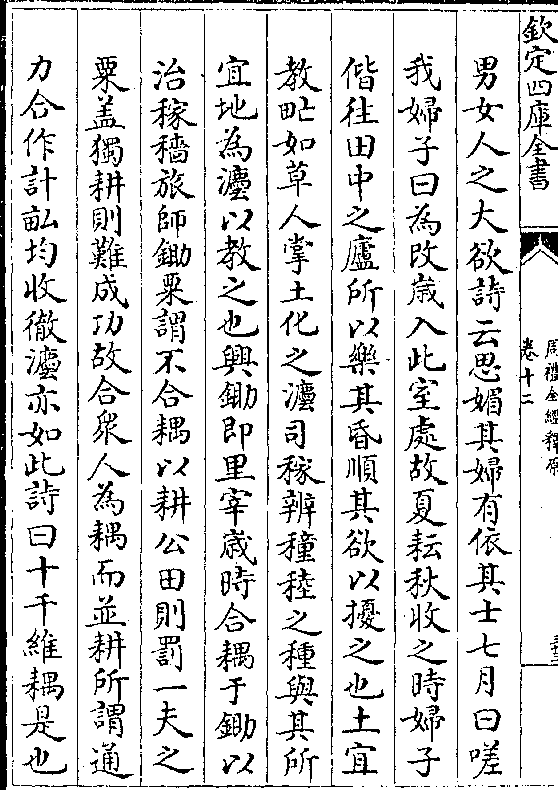 欽定四庫全書
周禮全經釋原
卷十二
男女人之大欲詩云思媚其婦有依其士七月曰嗟
我婦子曰為改歳入此室處故夏耘秋收之時婦子
偕往田中之廬所以樂其昏順其欲以擾之也土宜
教甿如草人掌土化之灋司稼辨穜稑之種與其所
宜地為灋以教之也興鋤即里宰歳時合耦于鋤以
治稼穡旅師鋤粟謂不合耦以耕公田則罰一夫之
粟盖獨耕則難成功故合衆人為耦而並耕所謂通
力合作計畝均收徹灋亦如此詩曰十千維耦是也